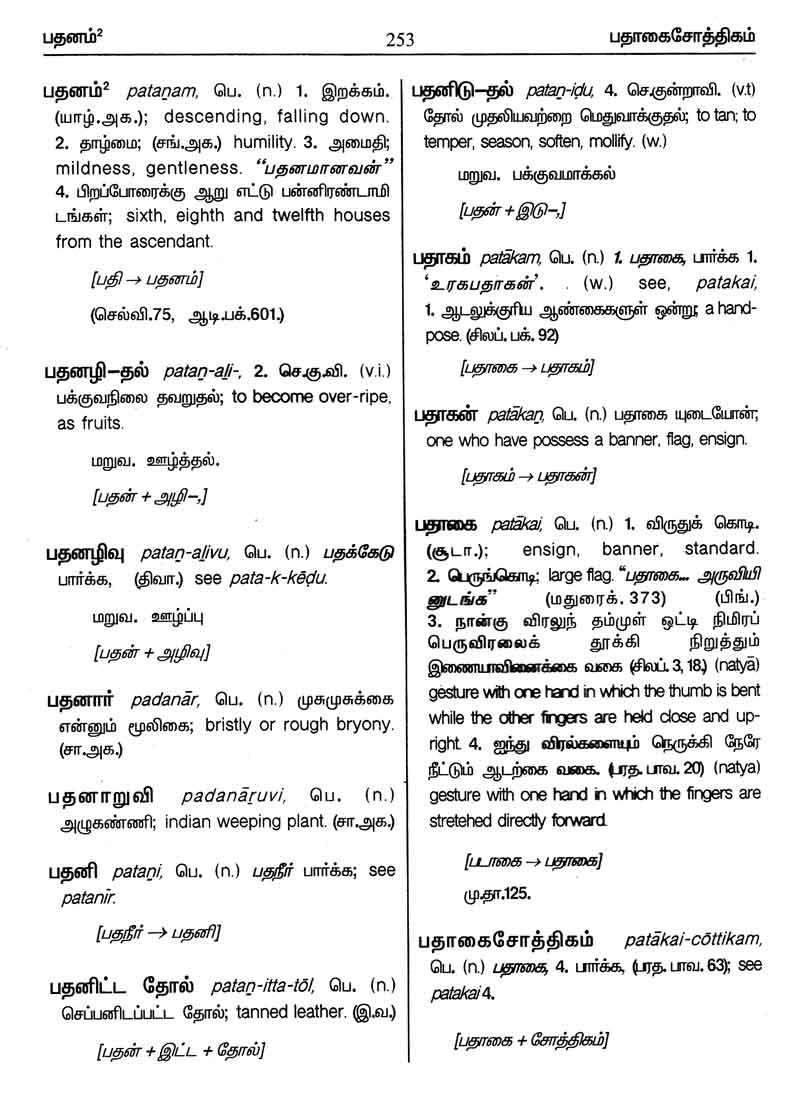 பதனம்²
253
பதாகைசோத்திகம்
பதனம்² pataṉam, பெ. (n.) 1. இறக்கம்.
(யாழ்.அக.); descending, falling down.
2. தாழ்மை; (சங்.அக.) humility. 3. அமைதி;
mildness, gentleness. “பதனமானவன்”
4. பிறப்போரைக்கு ஆறு எட்டு பன்னிரண்டாமி
டங்கள்; sixth, eighth and twelfth houses
from the ascendant.
[பதி → பதனம்]
(செல்வி.75, ஆடி.பக்.601.)
பதனழி–தல் pataṉ-aḻi-, 2. செ.கு.வி. (v.i.)
பக்குவநிலை தவறுதல்; to become over-ripe,
as fruits.
மறுவ. ஊழ்த்தல்.
[பதன் + அழி–,]
பதனழிவு pataṉ-aḻivu, பெ. (n.) பதக்கேடு
பார்க்க, (திவா.) see pata-k-kēḍu.
மறுவ. ஊழ்ப்பு
[பதன் + அழிவு]
பதனார் padanār, பெ. (n.) முசுமுசுக்கை
என்னும் மூலிகை; bristly or rough bryony.
(சா.அக.)
பதனாறுவி padanāṟuvi, பெ. (n.)
அழுகண்ணி; indian weeping plant. (சா.அக.)
பதனி pataṉi, பெ. (n.) பதநீர் பார்க்க; see
patanīr.
[பதநீர் → பதனி]
பதனிட்ட தோல் pataṉ-itta-tōl, பெ. (n.)
செப்பனிடப்பட்ட தோல்; tanned leather. (இ.வ.)
[பதன் + இட்ட + தோல்]
பதனிடு–தல் pataṉ-iḍu, 4. செ.குன்றாவி. (v.t)
தோல் முதலியவற்றை மெதுவாக்குதல்; to tan; to
temper, season, soften, mollify. (w.)
மறுவ. பக்குவமாக்கல்
[பதன் + இடு–,]
பதாகம் patākam, பெ. (n.) 1. பதாகை, பார்க்க 1.
‘உரகபதாகன்’. . (w.) see, patakai,
1. ஆடலுக்குரிய ஆண்கைகளுள் ஒன்று; a hand-
pose. (சிலப். பக். 92)
[பதாகை → பதாகம்]
பதாகன் patākaṉ, பெ. (n.) பதாகை யுடையோன்;
one who have possess a banner, flag, ensign.
[பதாகம் → பதாகன்]
பதாகை patākai, பெ. (n.) 1. விருதுக் கொடி.
(சூடா.); ensign, banner, standard.
2. பெருங்கொடி; large flag. “பதாகை... அருவியி
னுடங்க” (மதுரைக். 373) (பிங்.)
3. நான்கு விரலுந் தம்முள் ஒட்டி நிமிரப்
பெருவிரலைக் தூக்கி நிறுத்தும்
இணையாவினைக்கை வகை (சிலப். 3, 18.) (natyā)
gesture with one hand in which the thumb is bent
while the other fingers are held close and up-
right. 4. ஐந்து விரல்களையும் நெருக்கி நேரே
நீட்டும் ஆடற்கை வகை. (பரத. பாவ. 20) (natya)
gesture with one hand in which the fingers are
stretehed directly forward.
[படாகை → பதாகை]
மு.தா.125.
பதாகைசோத்திகம் patākai-cōttikam,
பெ. (n.) பதாகை, 4. பார்க்க, (பரத. பாவ. 63); see
patakai 4.
[பதாகை + சோத்திகம்]